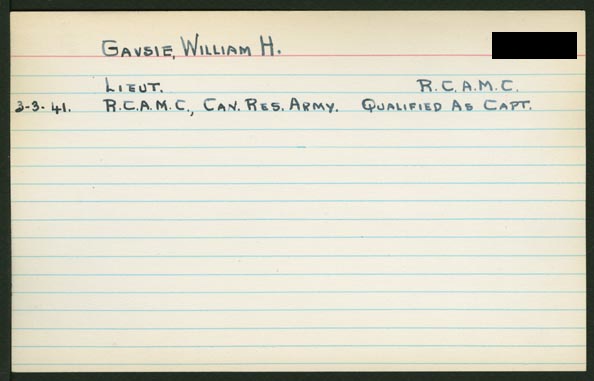 GAVSIE, WILLIAM H.
LIEUT. R.C.A.M.C.
3-3-41. R.C.A.M.C., CAN. RES. ARMY. QUALIFIED AS CAPT.